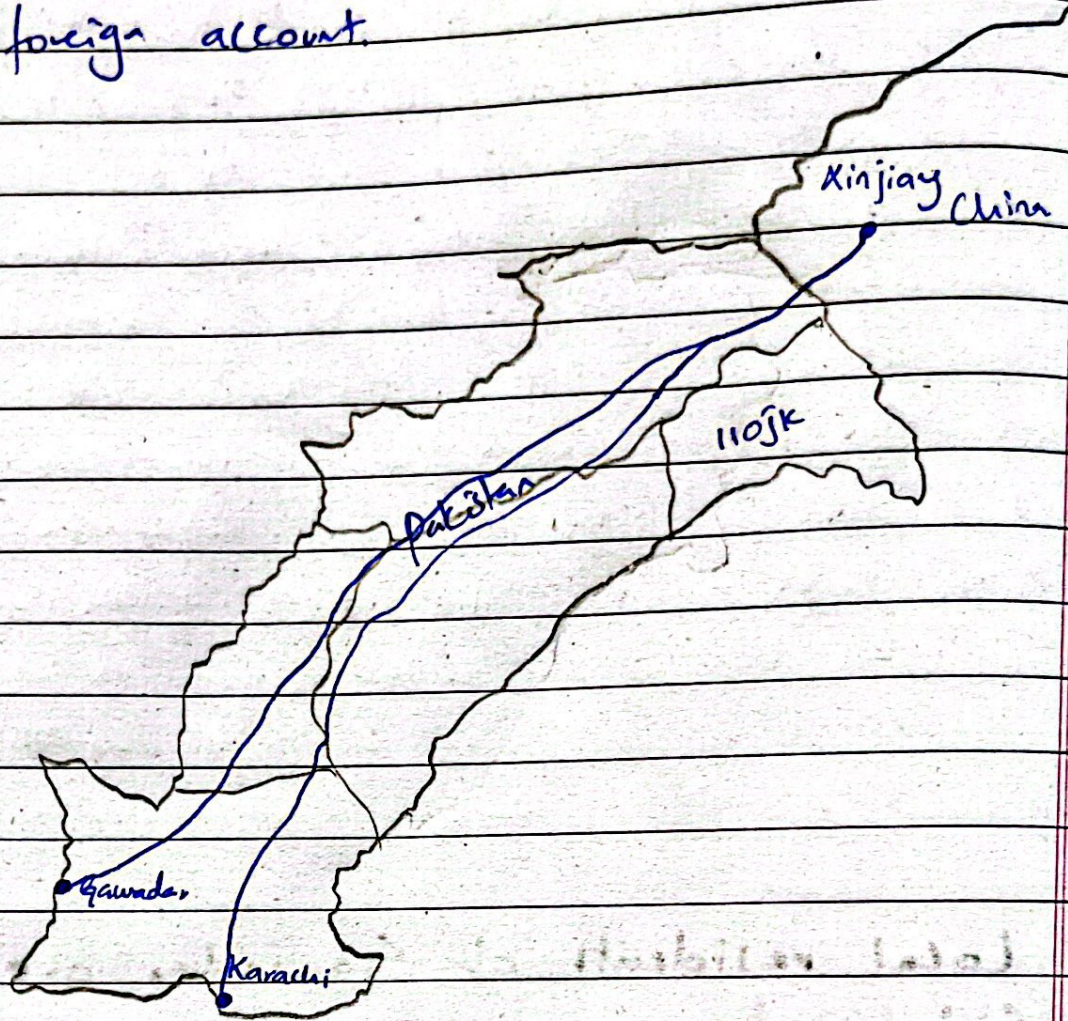 foreign account.
Xinjiang
China
IIOJK
Pakistan
Gawadar
Karachi